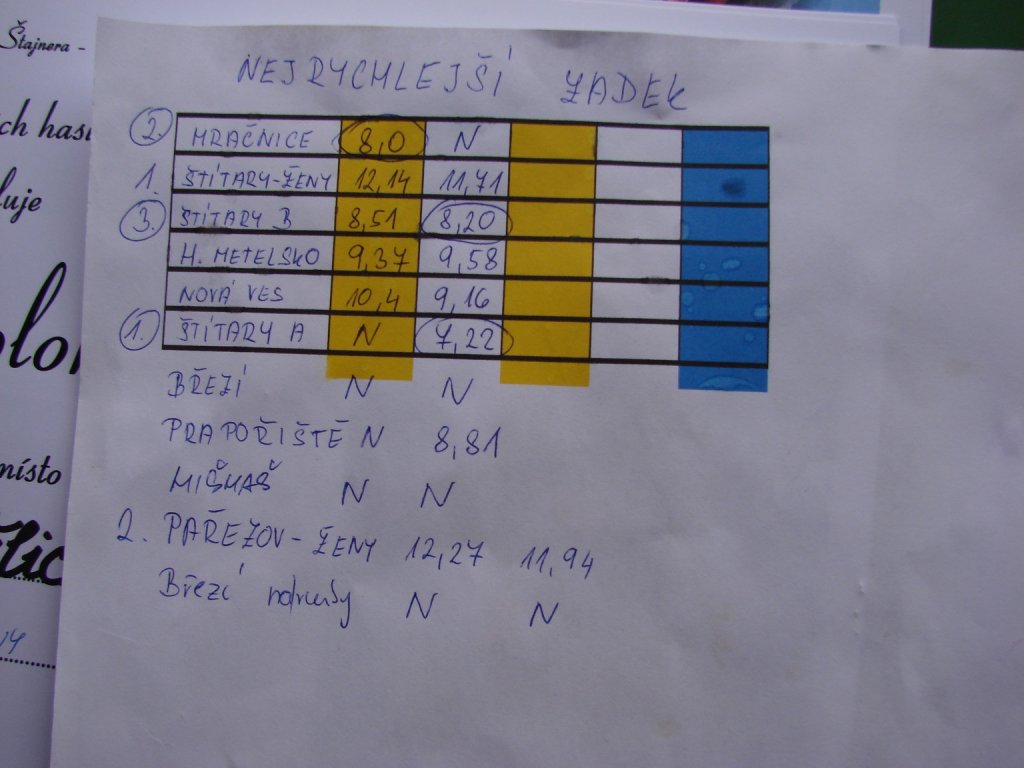 Štajnera -
ch hasi
luje
olo
místo
NEJRYCHLEJŠÍ ZADEK
2. MRAČNICE 8,0 N
1. ŠTÍTARY-ŽENY 12,14 11,71
3. ŠTÍTARY B 8,51 8,20
H. METELSKO 9,37 9,58
NOVÁ VES 10,4 9,16
1. ŠTÍTARY A N 7,22
BŘEZÍ N N
PRAPOŘIŠTĚ N 8,81
MIŠMAŠ N N
2. PAŘEZOV - ŽENY 12,27 11,94
Březí N N